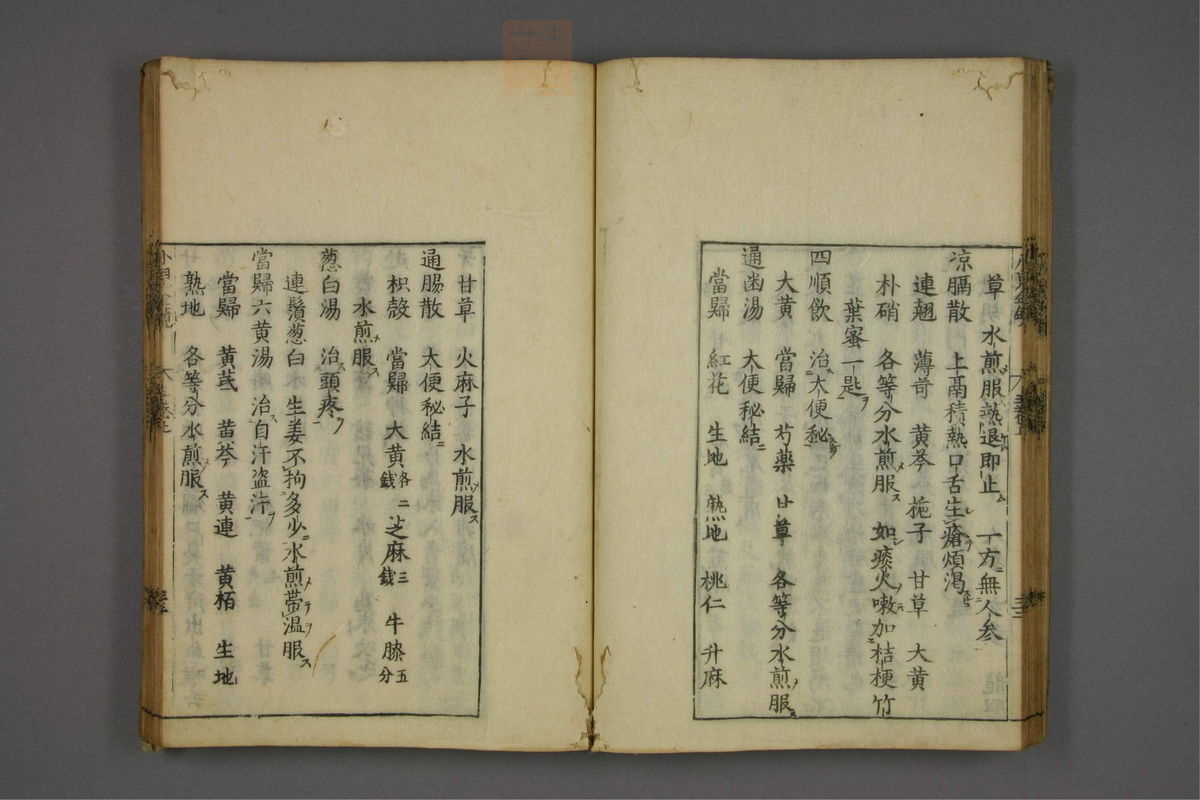 草　水煎服熱退即止　一方無人参
凉膈散　上鬲積熱口舌生瘡煩渇
連翹　薄苛　黄芩　梔子　甘草　大黄
朴硝　各等分水煎服　如痰火嗽加桔梗竹
葉蜜一匙
四順飲　治大便秘
大黄　當歸　芍藥　甘草　各等分水煎服
通幽湯　大便秘結
當歸　紅花　生地　熟地　桃仁　升麻
甘草　火麻子　水煎服
通腸散　大便秘結
枳殻　當歸　大黄各二錢　芝麻三錢　牛膝五分
水煎服
葱白湯　治頭疼
連鬚葱白　生姜不拘多少水煎帯温服
當歸六黄湯　治自汗盗汗
當歸　黄茋　苗芩　黄連　黄栢　生地
熟地　各等分水煎服